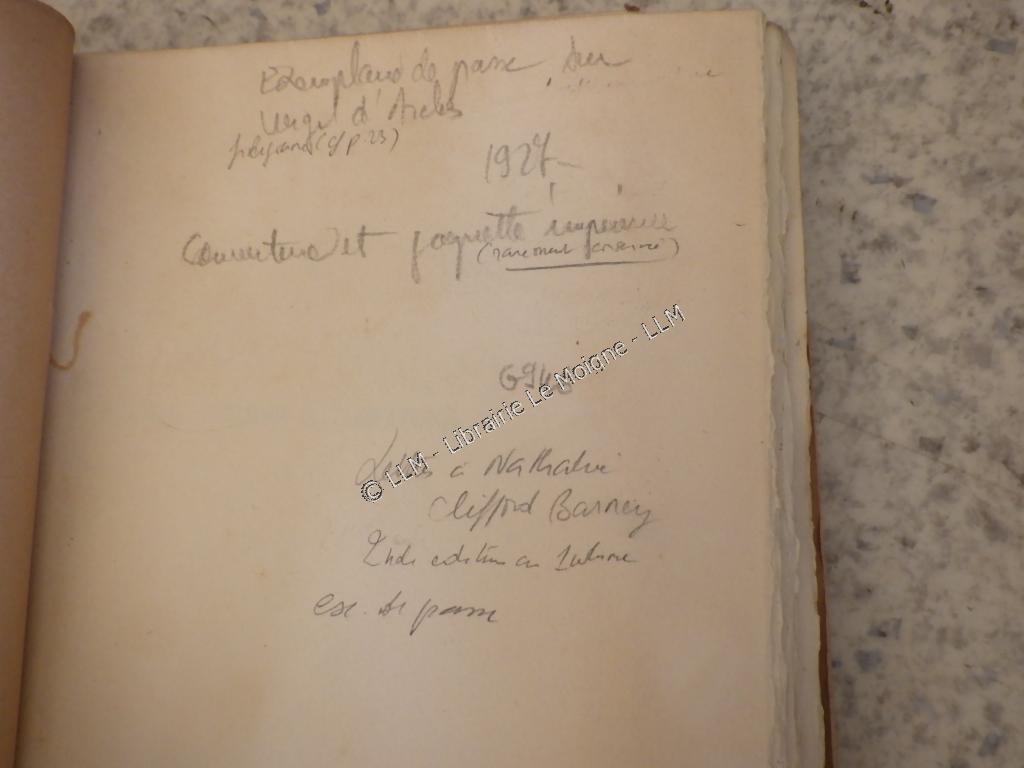 Exemplaire de passe sur
vergé d'Arches
(cf p. 23)
1927
Couverture et jaquette imprimée
(rarement conservée)
G94
© LLM - Librairie Le Moigne - LLM
à Nathalie
Clifford Barney
2nde edition en 1 volume
ex. de passe